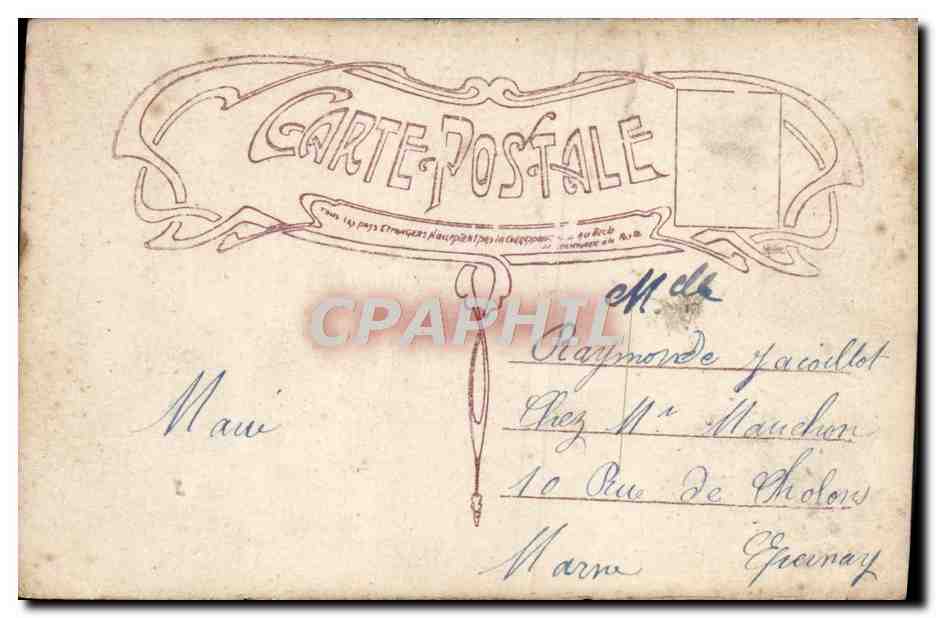 CARTE-POSTALE
Tous les pays Etrangers n'acceptent pas la Correspondance au Recto
CPAPHIL
M. de
Raymonde Jacoillot
Marie
Chez Mr Mauchon
10 Rue de Chalons
Epernay
Marne